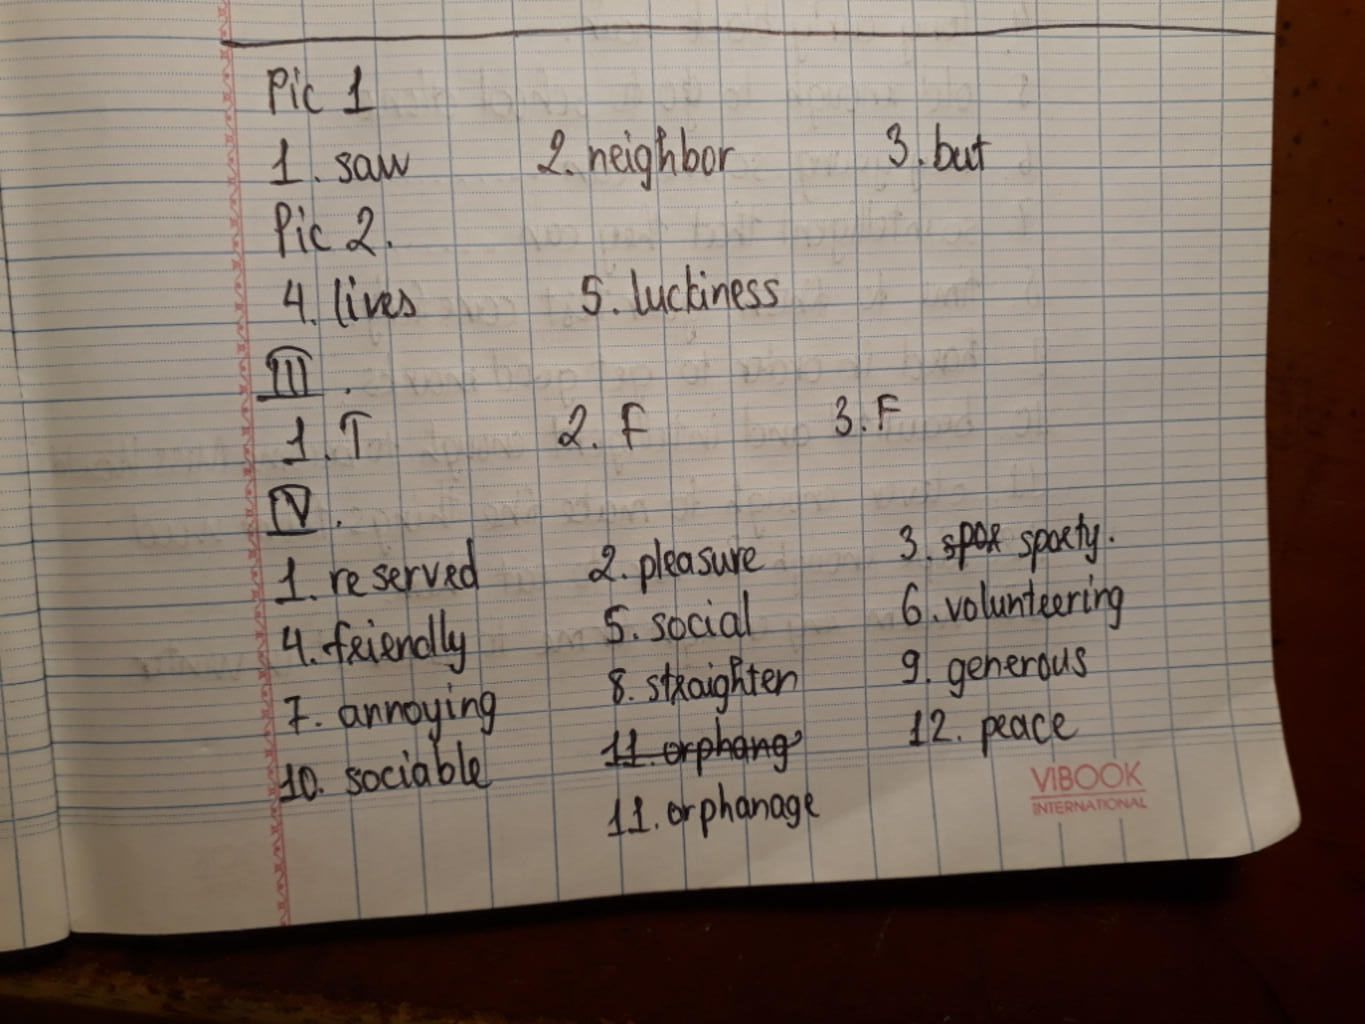 Pic 1
1. saw 2. neighbor 3. but
Pic 2.
4. lives 5. luckiness
III.
1. T 2. F 3. F
IV.
1. reserved 2. pleasure 3. spor sporty.
4. friendly 5. social 6. volunteering
7. annoying 8. straighten 9. generous
10. sociable 11. orphang 12. peace
11. orphanage
VIBOOK
INTERNATIONAL